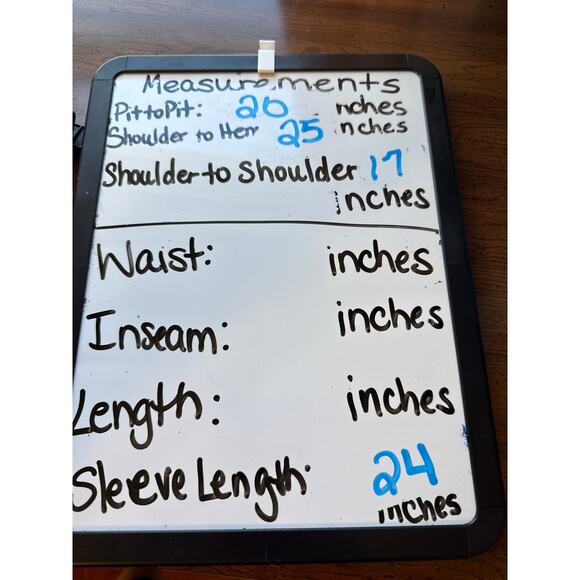 Measurements
Pit to Pit: 20 inches
Shoulder to Hem 25 inches
Shoulder to Shoulder 17
inches
Waist: inches
Inseam: inches
Length: inches
Sleeve Length: 24
inches